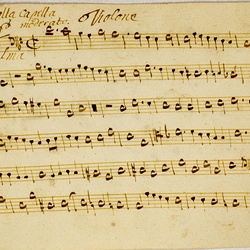 alla Capella
moderato. Violone